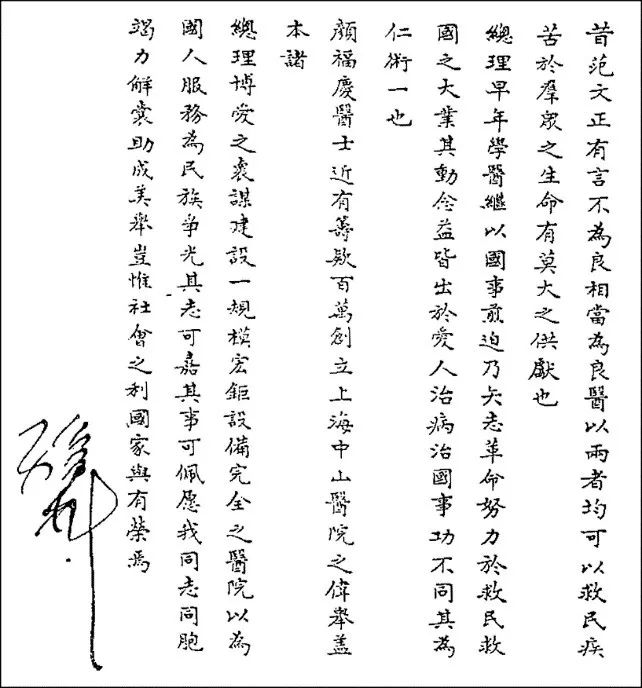 昔范文正有言不為良相當為良醫以兩者均可以救民疾
苦於羣眾之生命有莫大之供獻也
總理早年學醫繼以國事煎迫乃矢志革命努力於救民救
國之大業其動念益皆出於愛人治病治國事功不同其為
仁術一也
顏福慶醫士近有籌款百萬創立上海中山醫院之偉舉蓋
本諸
總理博愛之衷謀建設一規模宏鉅設備完全之醫院以為
國人服務為民族爭光其志可嘉其事可佩愿我同志同胞
竭力解囊助成美舉豈惟社會之利國家與有榮焉